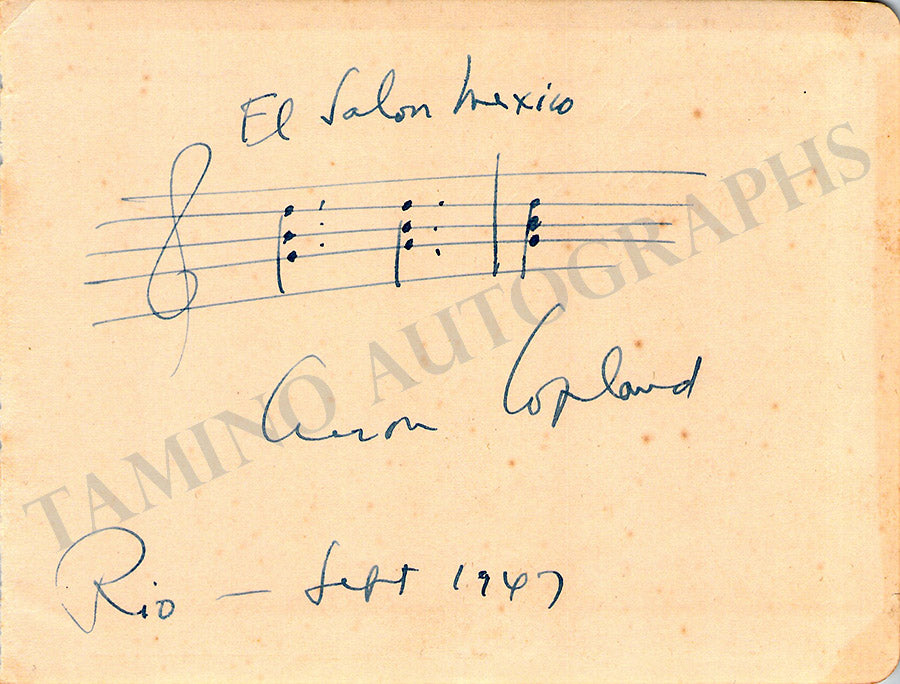 El Salon Mexico
Aaron Copland
Rio — Sept 1947
TAMINO AUTOGRAPHS